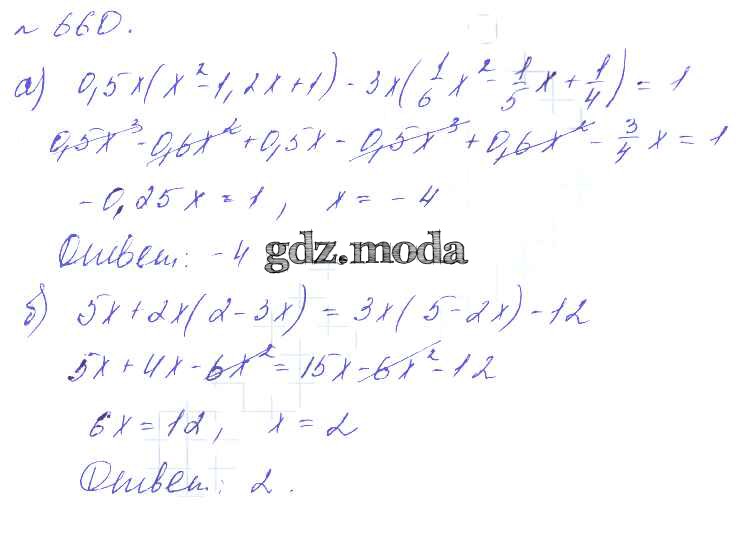 № 660.
а) 0,5x(x² - 1,2x + 1) - 3x(1/6 x² - 1/5 x + 1/4) = 1
0,5x³ - 0,6x² + 0,5x - 0,5x³ + 0,6x² - 3/4 x = 1
- 0,25x = 1, x = - 4
Ответ: - 4
gdz.moda
б) 5x + 2x(2 - 3x) = 3x(5 - 2x) - 12
5x + 4x - 6x² = 15x - 6x² - 12
6x = 12, x = 2
Ответ: 2.